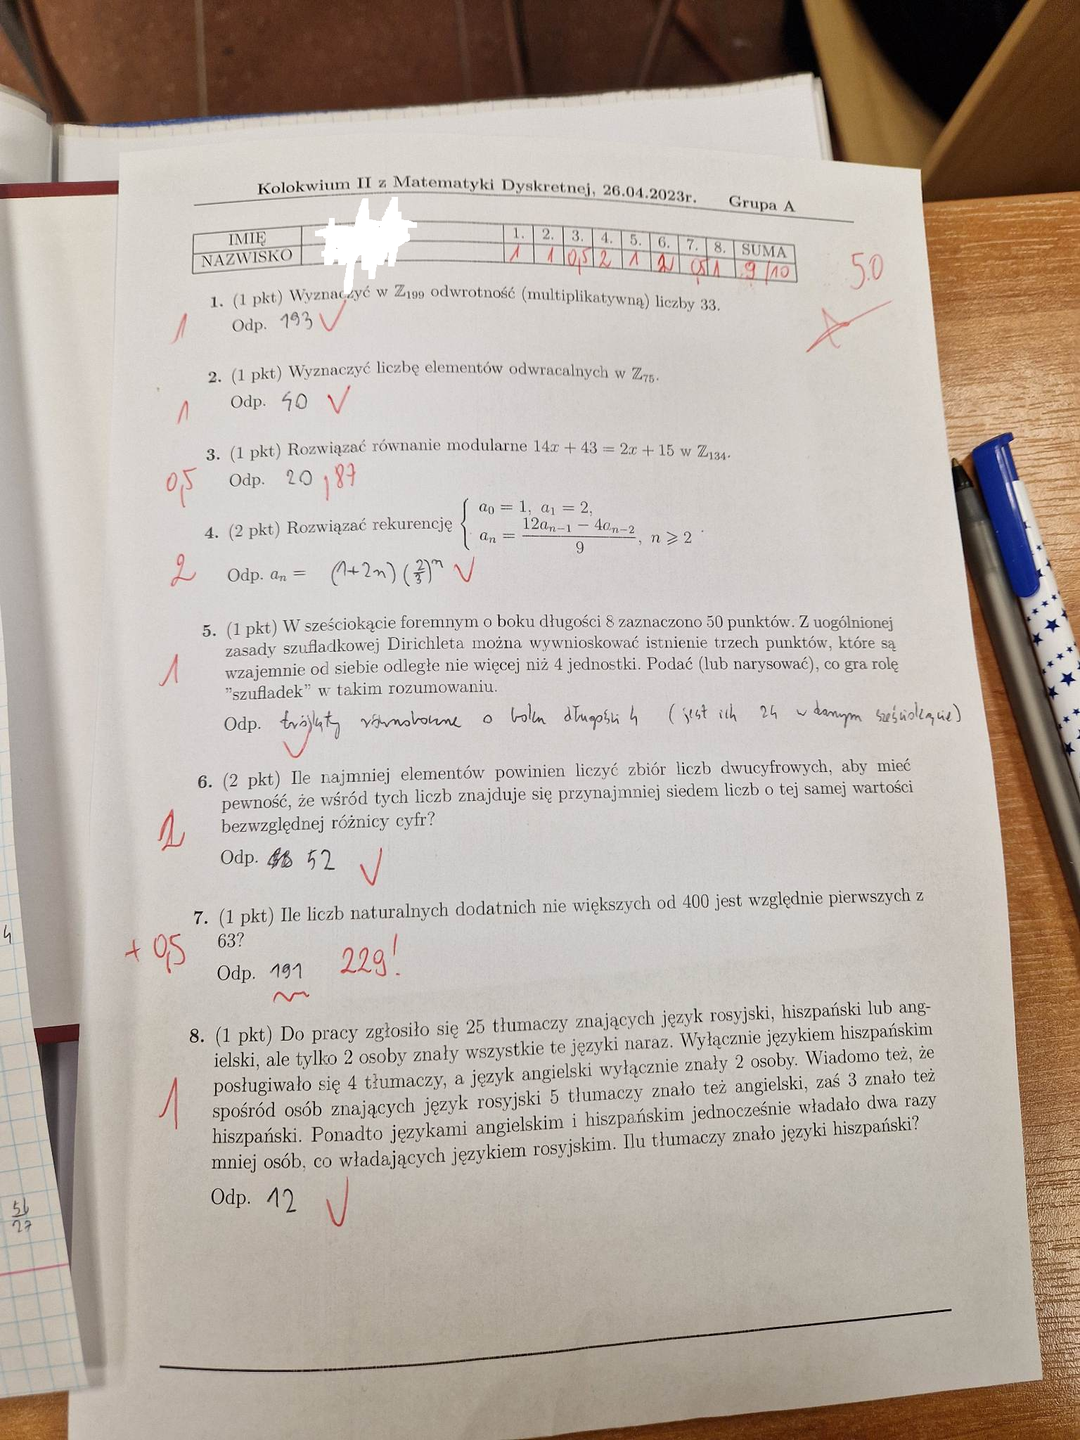 Kolokwium II z Matematyki Dyskretnej, 26.04.2023r. Grupa A
IMIĘ 1. 2. 3. 4. 5. 6. 7. 8. SUMA
NAZWISKO 1 1 0,5 2 1 2 0,5 1 9/10
5.0
1. (1 pkt) Wyznaczyć w ℤ₁₉₉ odwrotność (multiplikatywną) liczby 33.
1 Odp. 193 ✓
2. (1 pkt) Wyznaczyć liczbę elementów odwracalnych w ℤ₇₅.
1 Odp. 40 ✓
3. (1 pkt) Rozwiązać równanie modularne 14x + 43 = 2x + 15 w ℤ₁₃₄.
0,5 Odp. 20 , 87
4. (2 pkt) Rozwiązać rekurencję { a₀ = 1, a₁ = 2,
aₙ = (12aₙ₋₁ − 4aₙ₋₂)/9, n ⩾ 2 .
2 Odp. aₙ = (1+2n)(2/3)ⁿ ✓
5. (1 pkt) W sześciokącie foremnym o boku długości 8 zaznaczono 50 punktów. Z uogólnionej
zasady szufladkowej Dirichleta można wywnioskować istnienie trzech punktów, które są
1 wzajemnie od siebie odległe nie więcej niż 4 jednostki. Podać (lub narysować), co gra rolę
"szufladek" w takim rozumowaniu.
Odp. trójkąty równoboczne o boku długości 4 (jest ich 24 w danym sześciokącie)
✓
6. (2 pkt) Ile najmniej elementów powinien liczyć zbiór liczb dwucyfrowych, aby mieć
pewność, że wśród tych liczb znajduje się przynajmniej siedem liczb o tej samej wartości
2 bezwzględnej różnicy cyfr?
Odp. 52 ✓
7. (1 pkt) Ile liczb naturalnych dodatnich nie większych od 400 jest względnie pierwszych z
+ 0,5 63?
Odp. 191 229!
8. (1 pkt) Do pracy zgłosiło się 25 tłumaczy znających język rosyjski, hiszpański lub ang-
ielski, ale tylko 2 osoby znały wszystkie te języki naraz. Wyłącznie językiem hiszpańskim
posługiwało się 4 tłumaczy, a język angielski wyłącznie znały 2 osoby. Wiadomo też, że
1 spośród osób znających język rosyjski 5 tłumaczy znało też angielski, zaś 3 znało też
hiszpański. Ponadto językami angielskim i hiszpańskim jednocześnie władało dwa razy
mniej osób, co władających językiem rosyjskim. Ilu tłumaczy znało języki hiszpański?
Odp. 12 ✓
4
56
27